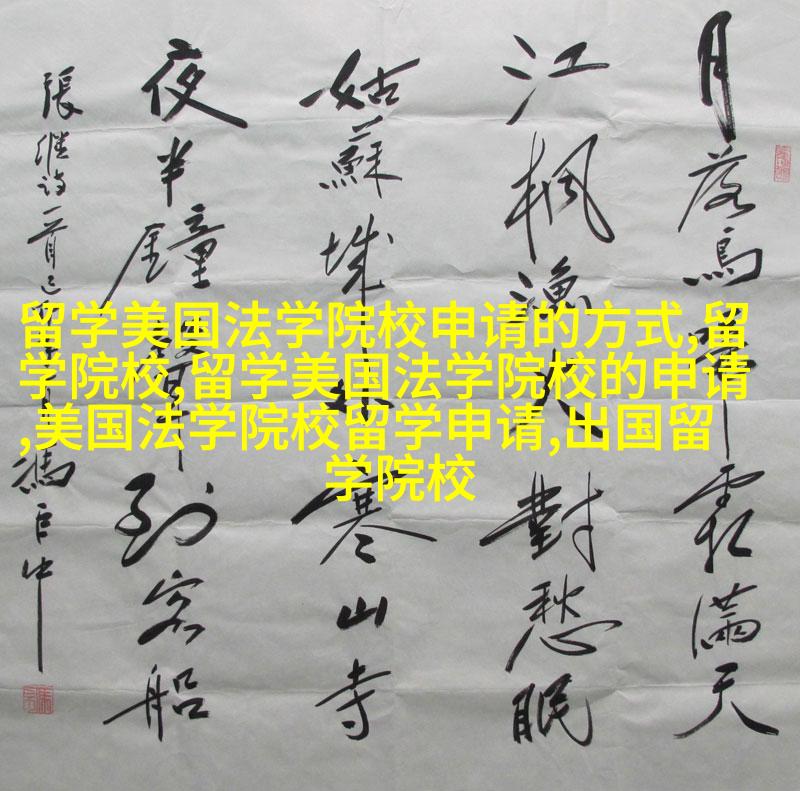 月落烏啼霜滿天
江楓漁火對愁眠
姑蘇城外寒山寺
夜半鐘聲到客船
張繼詩一首
留学美国法学院校申请的方式,留
学院校,留学美国法学院校的申请
,美国法学院校留学申请,出国留
学院校